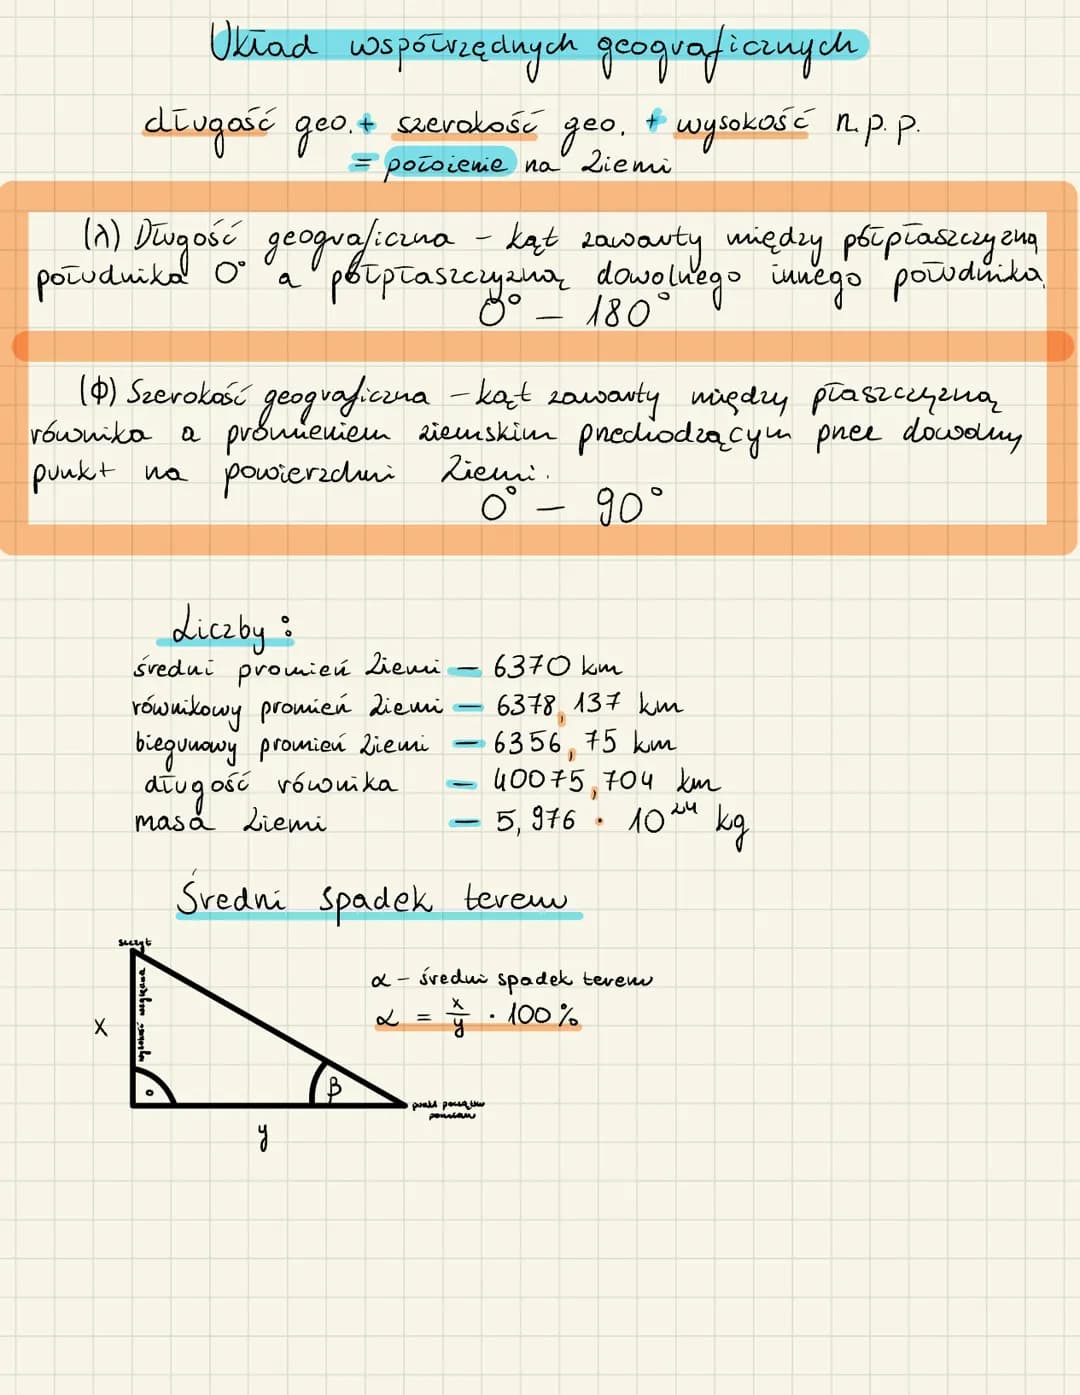 Układ współrzędnych geograficznych
długość geo. + szerokość geo. + wysokość n.p.p.
= położenie na Ziemi
(λ) Długość geograficzna - kąt zawarty między półpłaszczyzną
południka 0° a półpłaszczyzną dowolnego innego południka.
0° - 180°
(ϕ) Szerokość geograficzna - kąt zawarty między płaszczyzną
równika a promieniem ziemskim przechodzącym przez dowolny
punkt na powierzchni Ziemi.
0° - 90°
Liczby:
średni promień Ziemi - 6370 km
równikowy promień Ziemi - 6378,137 km
biegunowy promień Ziemi - 6356,75 km
długość równika - 40075,704 km
masa Ziemi - 5,976 · 10²⁴ kg
Średni spadek terenu
szczyt
α - średni spadek terenu
wysokość względna
X
α = x/y · 100%
β
punkt początku
pomiaru
y